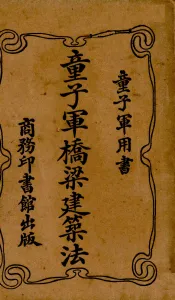 童子軍用書
童子軍橋梁建築法
商務印書館出版